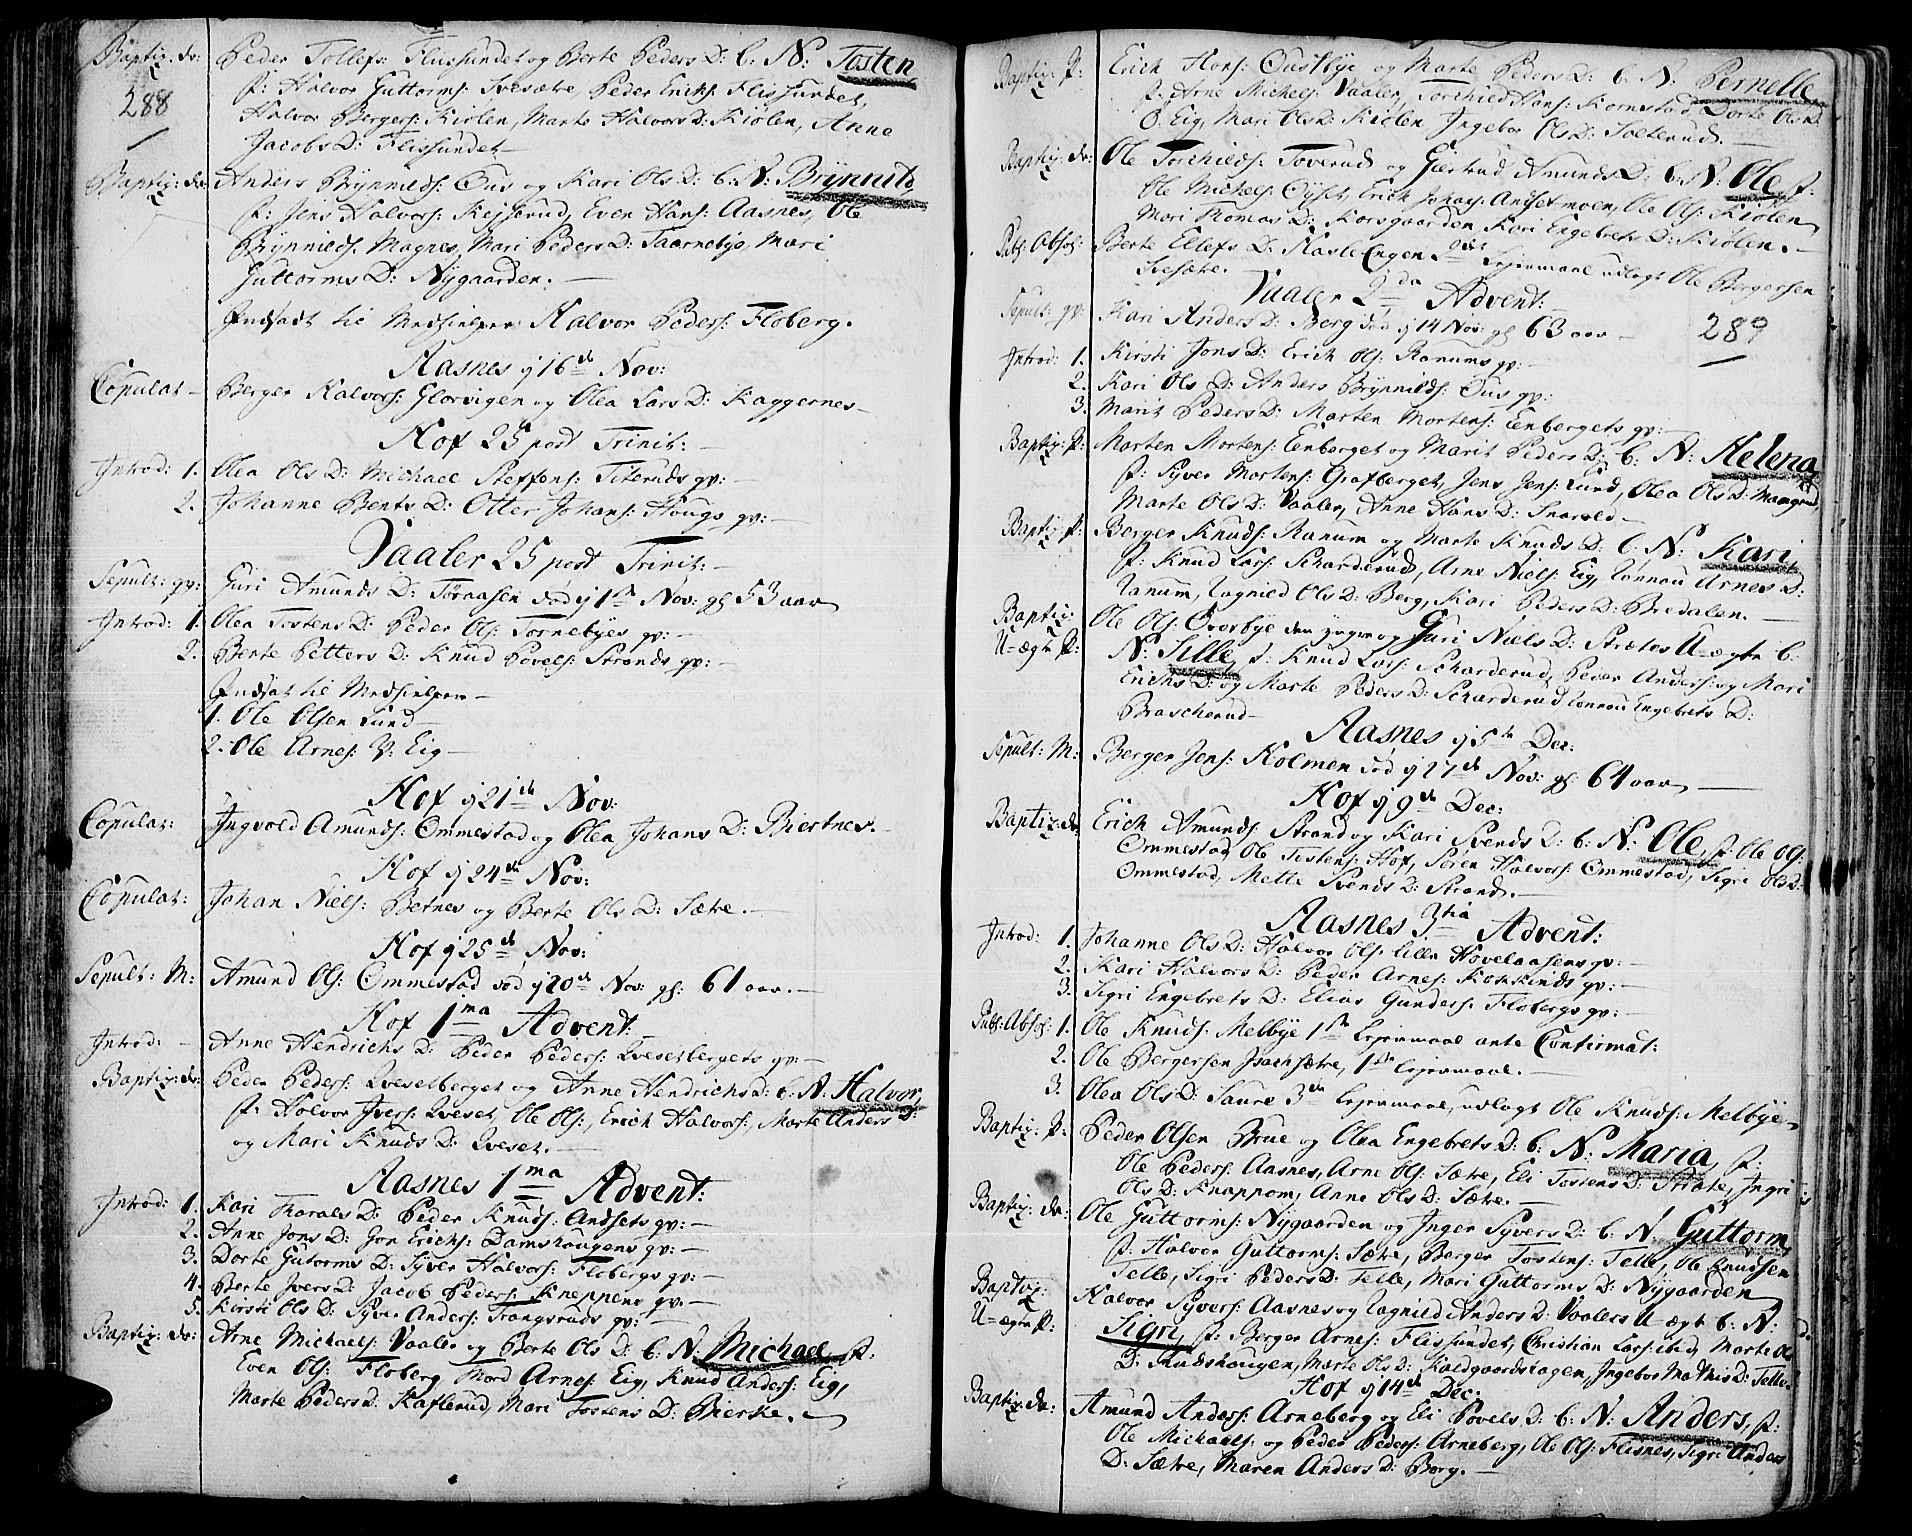 Baptiz: dr: Peder Tollefs: Flissundet og Berte Peders D: b: N: Tosten
288
f: Halvor Guttorms: Svesætre, Peder Erichs: Flissundet,
Halvor Bergers: Kiølen, Marte Halvors D: Kiølen, Anne
Jacobs D: Flissundet —
Baptiz: dr: Anders Brÿnnilds: Ous og Kari Ols D: b: N: Brÿnnild
f: Jens Halvors: Kejserud, Even Hans: Aasnes, Ole
Brÿnnilds: Magnes, Mari Peders D: Taarnebÿe, Mari
Guttorms D: Nÿgaarden. —
Indsadt til Medhielper Halvor Peders: Floberg.
Aasnes d 16de Nov:
Copulat — Berger Halvors: Glorvigen og Olea Lars D: Kaggernes —
Hof 25 post Trinit: —
Introd: 1. Olea Ols D: Michael Steffens: Titeruds qv: —
2. Johanne Bents D: Otter Johans: Hougs qv: —
Vaaler 25 post Trinit: —
Sepult: qv: Guri Amunds D: Toraasen død d 1ste Nov: gl 53 aar
Introd: 1. Olea Tostens D: Peder Ols: Tornebÿes qv: —
2. Berte Petters D: Knud Povels: Strands qv: —
Indsat til Medhielpere —
1. Ole Olsen Lund —
2. Ole Arnes: Eig —
Hof d 21de Nov:
Copulat: Ingvold Amunds: Ommestad og Olea Johans D: Biertnes. —
Hof d 24de Nov:
Copulat: Johan Niels: Bernes og Berte Ols D: Sætre. —
Hof d 25de Nov:
Sepult: M: Amund Ols: Ommestad død d 20de Nov: gl: 61 aar. —
Hof 1ma Advent:
Introd: — Anne Hendrichs D: Peder Peders: Qvesetbergets qv —
Baptiz: dr: Peder Peders: Qvesetberget og Anne Hendrichs D: b: N: Halvor,
f: Halvor Ivers: Qveset, Ole Ols:, Erich Halvors:, Marte Anders D:
og Mari Knuds D: Qveset. —
Aasnes 1ma Advent:
Introd: 1. Kari Haralds D: Peder Knuds: Andsets qv: —
2. Anne Jons D: Jon Erichs: Damshougens qv: —
3. Dorte Gutorms D: Syver Halvors: Flobergs qv: —
4. Berte Ivers D: Jacob Peders: Kneppens qv: —
5. Kirsti Ols D: Syver Anders: Trangsruds qv: —
Baptiz: dr: Arne Michaels: Vaaler og Berte Ols D: b: N: Michael, f:
Even Ols: Floberg, Tord Arnes: Eig, Knud Anders: Eig,
Marte Peders D: Kaflerud, Mari Tostens D: Bierke. —
Baptiz: P: Erich Hans: Oustbÿe og Marte Peders D: b: N: Pernelle
f: Arne Michels: Vaaler, Torchild Hans: Kornstad, Dorte Ols D:
Eig, Mari Ols D: Kiølen, Ingebor Ols D: Sæterud. —
Baptiz: dr: Ole Torchilds: Toverud og Giertrud Amunds D: b: N: Ole f:
Ole Michels: Opset, Erich Johans: Andsetmoen, Ole Ols: Kiølen
Mari Thomas D: Korsgaarden, Kari Engebrets D: Kiølen. —
Publ: Absol: Berte Ellefs D: Hasle Engen 2det Lejermaal udlagt Ole Bergersen
Svesætre.
Vaaler 2da Advent:
Sepult: qv: Kari Anders D: Berg død d 14 Nov: gl 63 aar —
289
Introd: 1. Kirsti Jons D: Erich Ols: Ranums qv:
2. Kari Ols D: Anders Brÿnnilds: Ous qv:
3. Marit Peders D: Morten Mortens: Eenbergets qv: —
Baptiz: P: Morten Mortens: Eenberget og Marit Peders D: b: N: Helena
f: Syver Mortens: Grafberget, Jens Jens: Lund, Olea Ols D: Maagerud
Marte Ols D: Vaaler, Anne Hans D: Snarold —
Baptiz: P: Berger Knuds: Ranum og Marte Knuds D: b: N: Kari
f: Knud Lars: Scharderud, Arne Niels: Eig, Rønnou Arnes D:
Ranum, Ragnild Ols D: Berg, Kari Peders D: Bredalen. —
Baptiz: Ole Ols: Overbÿe den yngre og Guri Niels D: Strætes U-ægte b:
U=ægte P: N: Sille, f: Knud Lars: Scharderud, Peder Anders: og Mari
Erichs D: og Marte Peders D: Scharderud Rønnou Engebrets D:
Brascherud —
Aasnes d 5te Dec:
Sepult: M: Berger Jens: Holmen død d 27de Nov: gl: 64 aar —
Hof d 9de Dec:
Baptiz: dr: Erich Amunds: Strand og Kari Svends D: b: N: Ole, f: Ole Ols:
Ommestad, Ole Tostens: Hof, Søren Halvors: Ommestad, Sigri Ols D:
Ommestad, Mette Svends D: Strand. —
Aasnes 3tia Advent:
Introd: 1. Johanne Ols D: Halvor Ols: lille Hovelaasens qv: —
2. Kari Halvors D: Peder Arnes: Kotkinds qv: —
3. Sigri Engebrets D: Elias Gunders: Flobergs qv: —
Publ: Absol: 1. Ole Knuds: Melbÿe 1ste Lejermaal ante Confirmat:
2. Ole Bergersen Isachsætre, 1ste Lejermaal. —
3. Olea Ols D: Saure 3die Lejermaal, udlagt Ole Knuds: Melbÿe
Baptiz: P: Peder Olsen Brue og Olea Engebrets D: b: N: Maria, f:
Ole Peders: Aasnes, Arne Ols: Sætre, Eli Tostens D: Stræte, Ingri
Ols D: Knappom, Anne Ols D: Sætre. —
Baptiz: dr: Ole Guttorms: Nÿgaarden og Inger Syvers D: b: N: Guttorm,
f: Halvor Guttorms: Sætre, Berger Tostens: Telle, Ole Knudsen
Telle, Sigri Peders D: Telle, Mari Guttorms D: Nÿgaarden
Baptiz: Halvor Syvers: Aasnes og Ragnild Anders D: Vaalers U-ægte b: N:
U=ægte P: Sigri, f: Berger Arnes: Flissundet, Christian Lars: ibid, Marte Ols
D: Knudshaugen, Marte Ols D: Kaldgaardshagen, Ingebor Mathis D: Telle.
Hof d 14de Dec:
Baptiz: dr: Amund Anders: Arneberg og Eli Povels D: b: N: Anders, f:
Ole Michaels: og Peder Peders: Arneberg, Ole Ols: Flisnes, Sigri Anders
D: Sætre, Maren Anders D: Borg. —